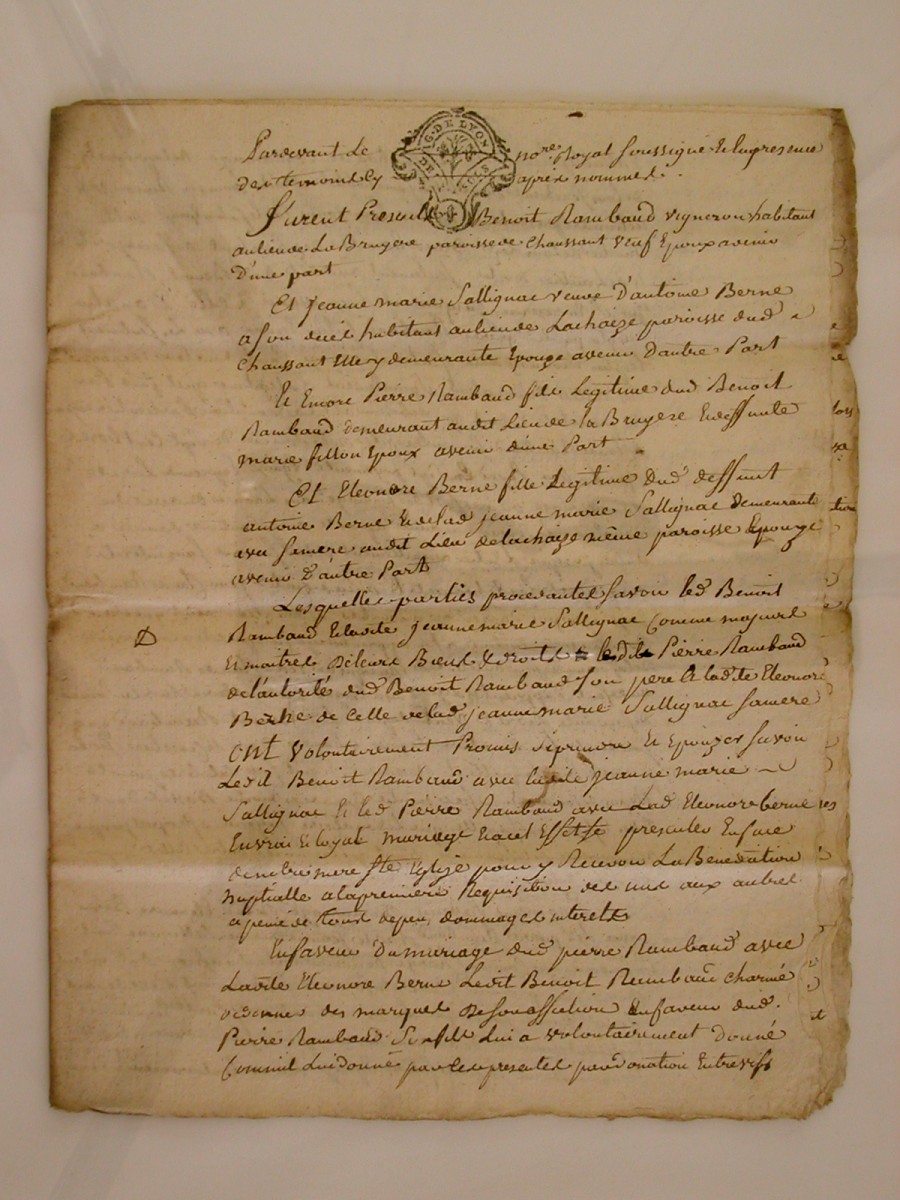 Pardevant Le no.re Royal soussigné et en presence
des temoins cy apres nommes.
G. DE LYON
furent Presents Benoit Rambaud vigneron habitant
au lieu de La Bruyere paroisse de Chaussant veuf Epoux avenir
D'une part
Et jeanne marie Sallignac veuve d'antoine Berne
a son deces habitant au lieu de Lachaize paroisse dud
Chaussant Elle y demeurante Epouze avenir d'autre Part
Et Encore Pierre Rambaud fils Legitime dud Benoit
Rambaud demeurant audit Lieu de la Bruyere Et deffunte
marie fillon Epoux avenir d'une Part
Et Eleonore Berne fille Legitime dud deffunt
antoine Berne et de lad jeanne marie Sallignac demeurante
avec sa mere audit Lieu de lachaize même paroisse Epouze
avenir D'autre Part
Lesquelles parties procedantes savoir led Benoit
Rambaud et ladite jeanne marie Sallignac comme majeurs
et maitres de leurs Biens & droits ledit Pierre Rambaud
de l'autorité dud Benoit Rambaud son pere et ladite Eleonore
Berne de Celle de lad jeanne marie Sallignac sa mere
ont volontairement Promis se prendre et Epouzer savoir
Ledit Benoit Rambaud avec ladite jeanne marie
Sallignac et led Pierre Rambaud avec Lad Eleonore berne
En vrai et loyal mariage et a cet Effet se presenter En face
de notre mere Ste Eglize pour y Recevoir La Benediction
Nuptialle a la premiere Requisition des uns aux autres
a peine de tous depens dommages interets
En faveur du mariage dud pierre Rambaud avec
Ladite Eleonore Berne Ledit Benoit Rambaud charmé
de donner des marques de son affection En faveur dud.
Pierre Rambaud Son fils Lui a volontairement donné
Comme il Lui donne par les presentes par donation Entre vifs